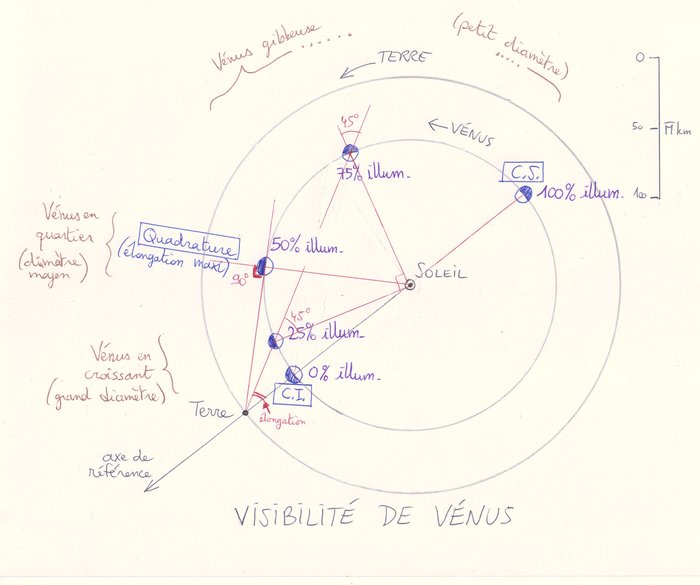 Vénus gibbeuse
(petit diamètre)
TERRE
0
45°
VÉNUS
50
M km
75% illum.
C.S.
100% illum.
100
Vénus en
quartier
(diamètre)
moyen
Quadrature
(élongation maxi)
50% illum.
SOLEIL
90°
45°
25% illum.
Vénus en
croissant
(grand diamètre)
0% illum.
C.I.
Terre
élongation
axe de
référence
VISIBILITÉ DE VÉNUS